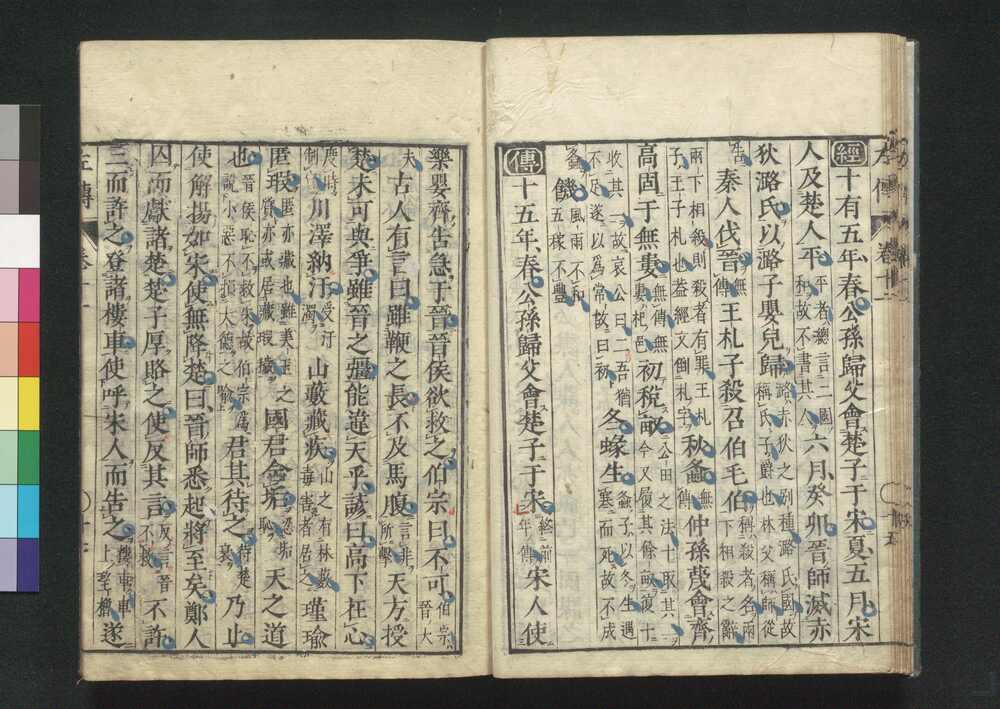 經十有五年春公孫歸父會楚子于宋夏五月宋
人及楚人平平者總言二國和故不書其人六月癸卯晉師滅赤
狄潞氏以潞子嬰兒歸潞赤狄之別種潞氏國故稱氏子爵也林父稱師從
告秦人伐晉無傳王札子殺召伯毛伯稱殺者名兩下相殺之辭
兩下相殺則殺者有罪王札子王子札也蓋經文倒札字秋螽無傳仲孫蔑會齊
高固于無婁無傳無婁杞邑初稅畝公田之法十取其一今又履其餘畝復十
收其一故哀公曰二吾猶不足遂以為常故曰初冬蝝生螽子以冬生遇寒而死故不成
螽饑風雨不和五稼不豐
傳十五年春公孫歸父會楚子于宋終前年傳宋人使
樂嬰齊告急于晉晉侯欲救之伯宗曰不可伯宗晉大
夫古人有言曰雖鞭之長不及馬腹言非所擊天方授
楚未可與爭雖晉之彊能違天乎諺曰高下在心
度時制宜川澤納汙受汙濁山藪藏疾山之有林藪毒害者居之瑾瑜
匿瑕匿亦藏也雖美玉之質亦或居藏瑕穢國君含垢忍垢恥天之道
也晉侯恥不救宋故伯宗為說小惡不損大德之喻君其待之待楚衰乃止
使解揚如宋使無降楚曰晉師悉起將至矣鄭人
囚而獻諸楚楚子厚賂之使反其言反言晉不救不許
三而許之登諸樓車使呼宋人而告之樓車車上望櫓遂